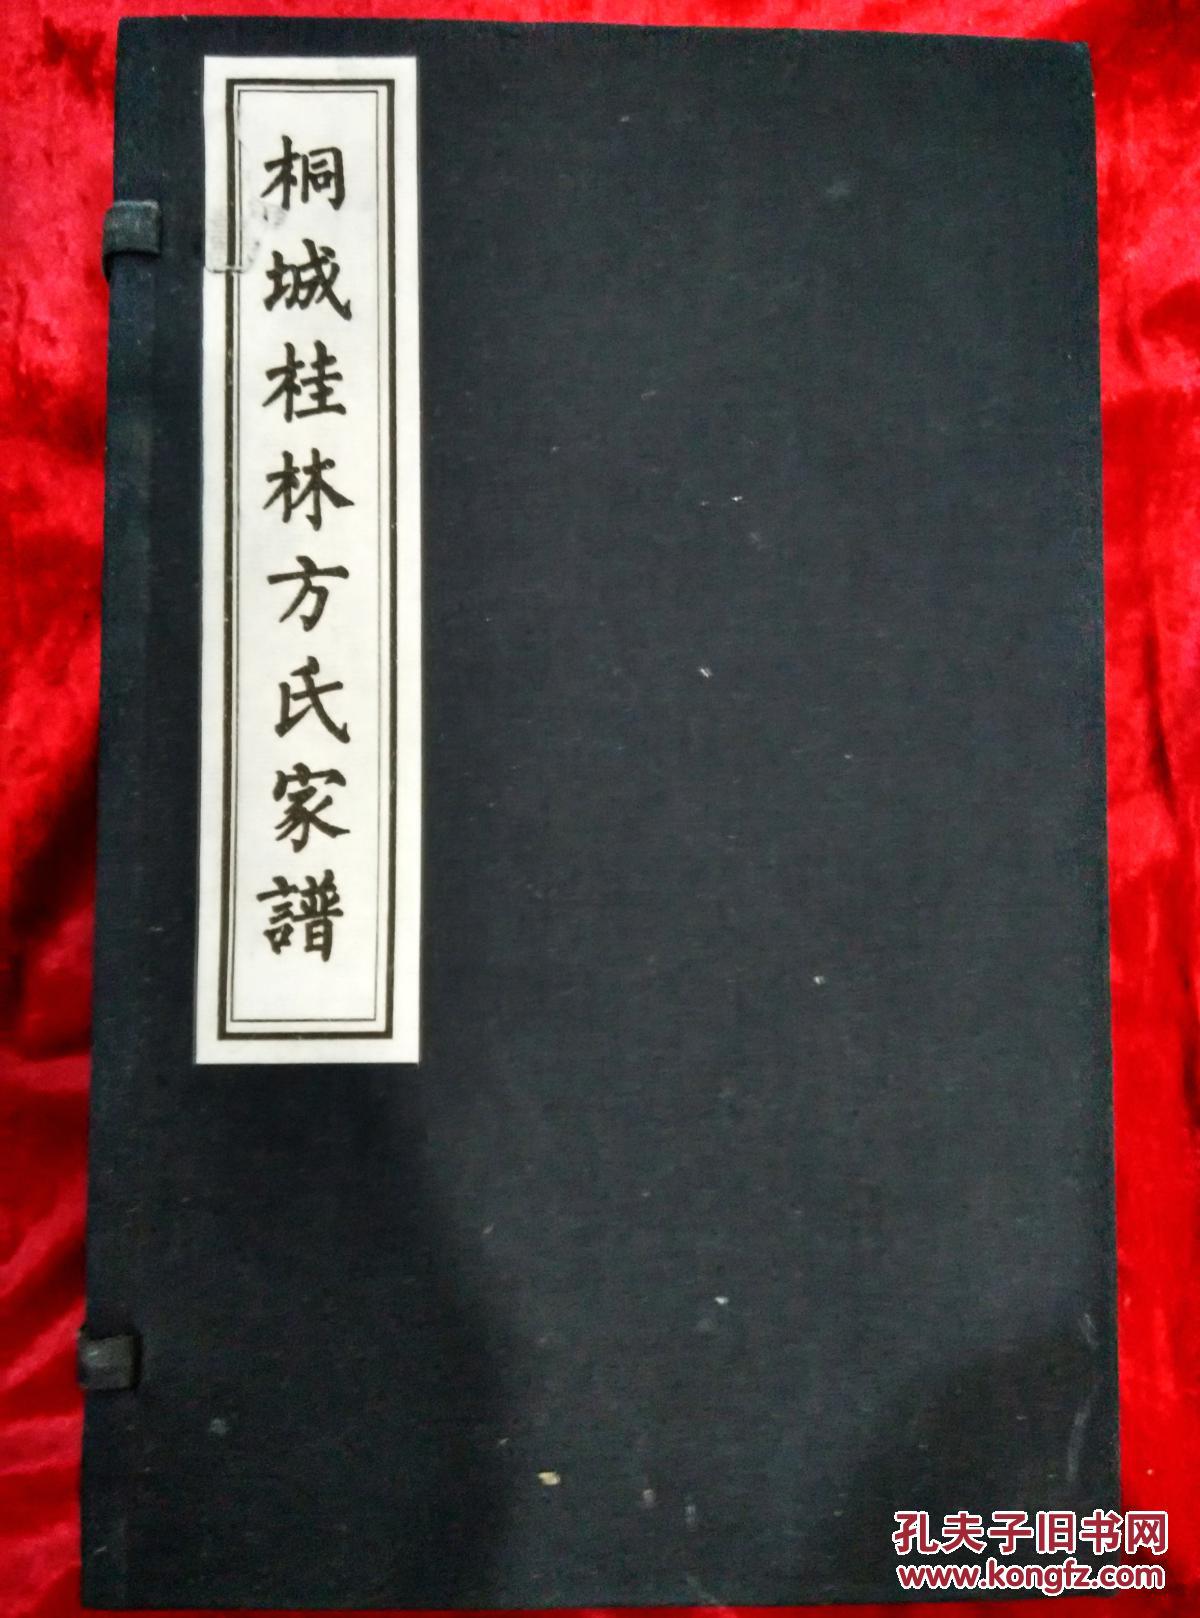 桐城桂林方氏家譜
孔夫子旧书网
www.kongfz.com